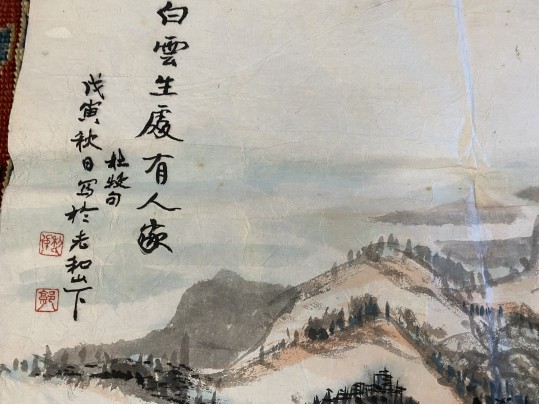 白雲生處有人家
杜牧句
戊寅秋日写於老和山下